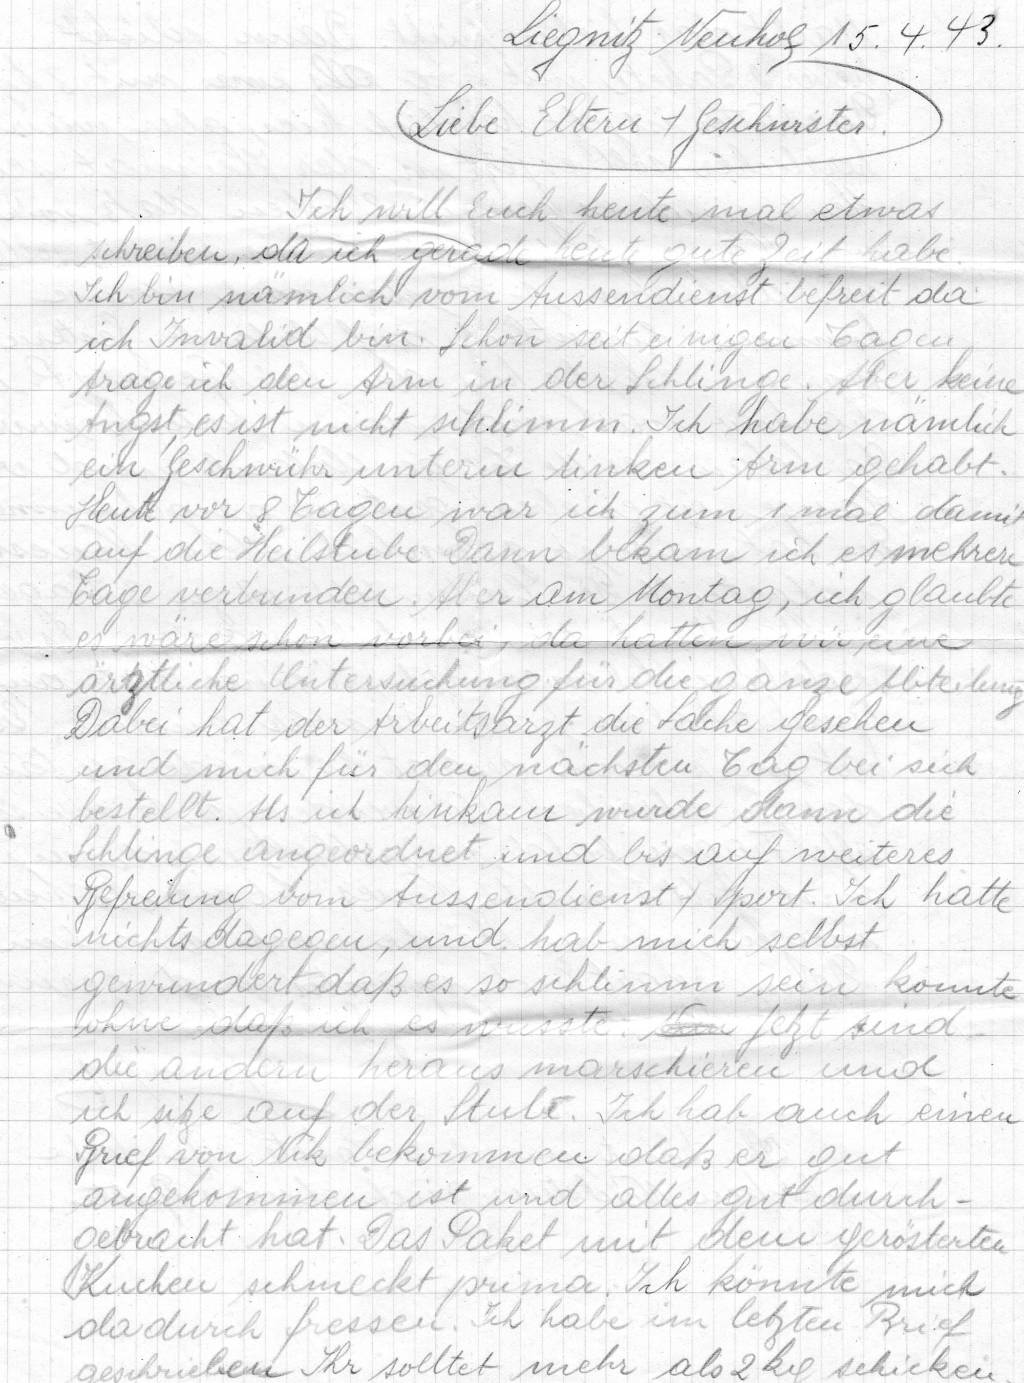 Liegnitz Neuhof 15. 4. 43.
Liebe Eltern + Geschwister.
Ich will Euch heute mal etwas
schreiben, da ich gerade heute gute Zeit habe.
Ich bin nämlich vom Aussendienst befreit da
ich Invalid bin. Schon seit einigen Tagen
trage ich den Arm in der Schlinge. Aber keine
Angst, es ist nicht schlimm. Ich habe nämlich
ein Geschwühr unterm linken Arm gehabt.
Heute vor 8 Tagen war ich zum 1 mal damit
auf die Heilstube Dann bekam ich es mehrere
Tage verbunden. Aber am Montag, ich glaubte
es wäre schon vorbei, da hatten wir eine
ärztliche Untersuchung für die ganze Abteilung
Dabei hat der Arbeitsarzt die Sache gesehen
und mich für den nächsten Tag bei sich
bestellt. Als ich hinkam wurde dann die
Schlinge angeordnet und bis auf weiteres
Befreiung vom Aussendienst + Sport. Ich hatte
nichts dagegen, und hab mich selbst
gewundert daß es so schlimm sein konnte
ohne daß ich es wusste. Jetzt sind
die andern heraus marschieren und
ich sitze auf der Stube. Ich hab auch einen
Brief von Nik bekommen daß er gut
angekommen ist und alles gut durch-
gebracht hat. Das Paket mit dem gerösterten
Kuchen schmeckt prima. Ich könnte mich
dadurch fressen. Ich habe im letzten Brief
geschrieben Ihr solltet mehr als 2 kg schicken.